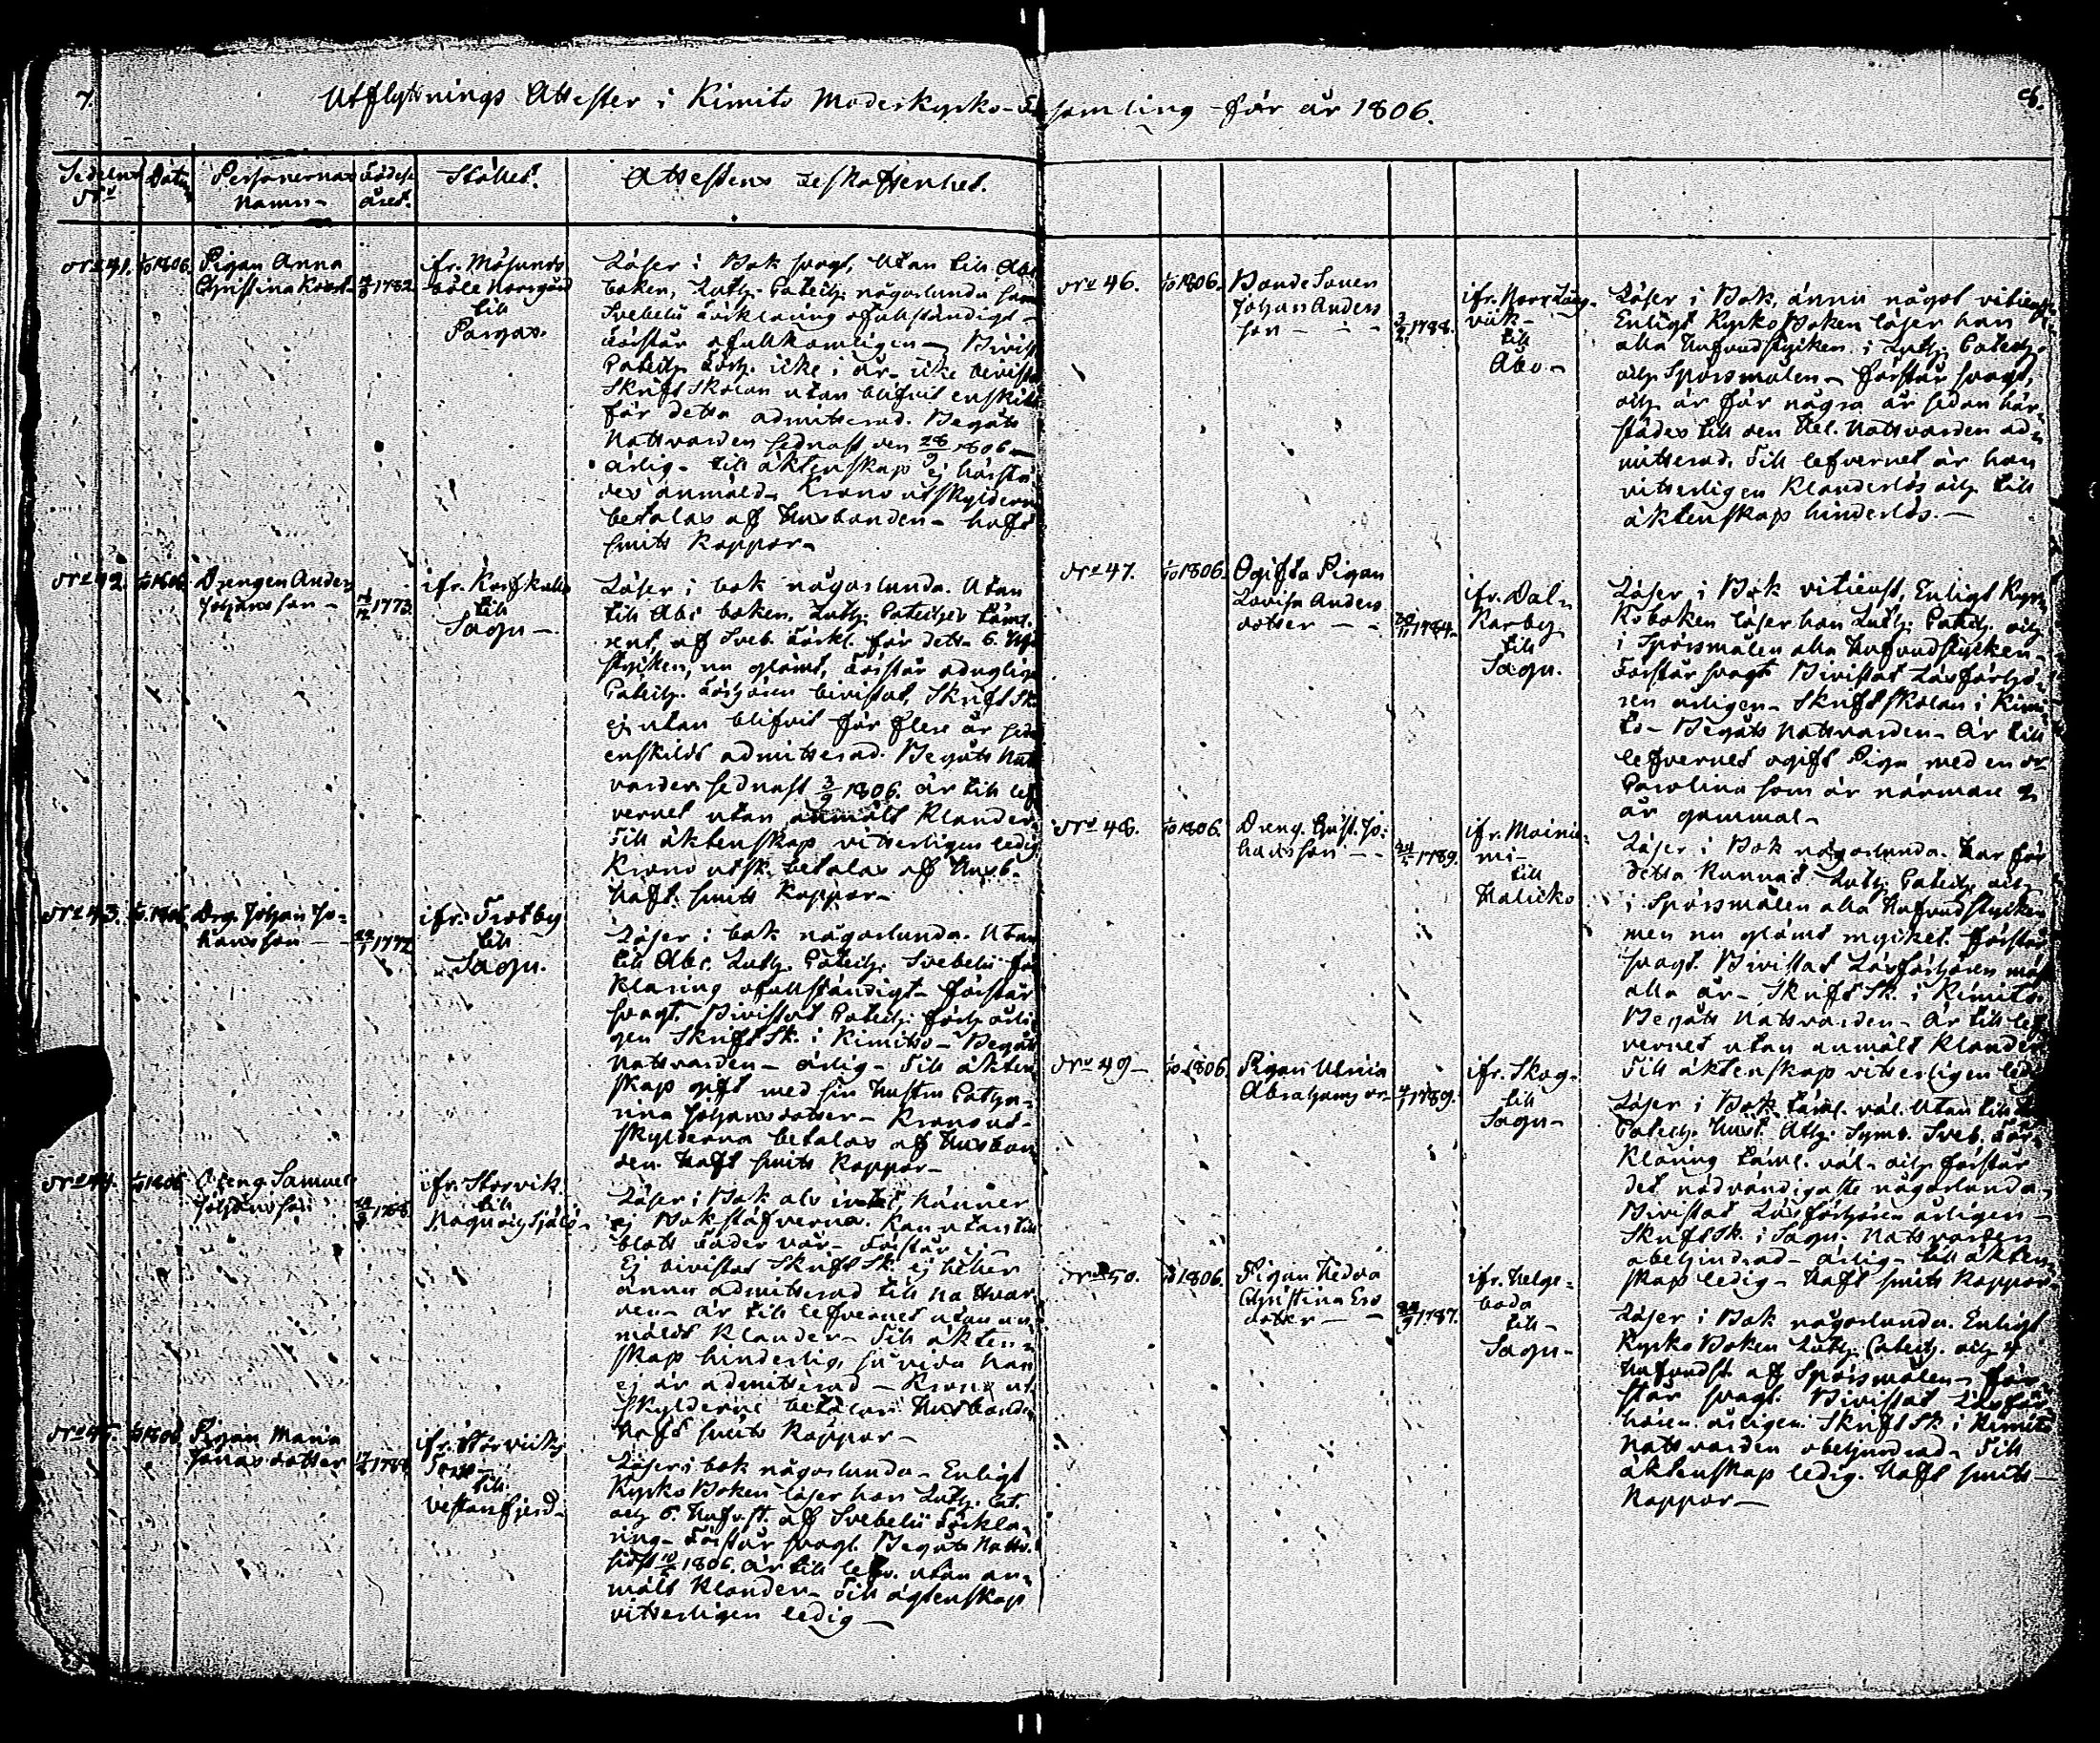 7.
8.
Utflyttnings Attester i Kimito Moderkyrko-Församling för år 1806.
Sedelns No
Datum
Personernas Namn-
Födelse året.
Stället.
Attestens beskaffenhet.
No 41. 1/10 1806. Pigan Anna
Christina 1782.
ifr. Mösunds
böle Norrgård
till
Pargas.
Läser i Bok svagt, Utan till Abc
boken, Luth. Catech. någorlunda samt
Svebelii Förklaring ofullständigt-
Förstår ofullkomligen-
Catech. Förh. icke i år- icke bivistat
Skrift Skolan utan blifvit enskilt
för detta admitterad. Begått
Nattvarden sednast den 28/9 1806-
ärlig- till äktenskap ej härstä-
des anmäld- Krono utskylderna
betalas af Husbonden- haft
smitt Koppor-
No 42. 1/10 1806. Drengen Anders
Johansson- 1773.
ifr.
till
Sagu-
Läser i bok någorlunda. Utan
till Abc boken, Luth. Cateches täml.
rent, af Sveb. Förkl. för detta 6. Huf.
stycken, nu glömt, Förstår odugligt
Catech. Förhören bivistat, Skrift Sk.
ej utan blifvit för flere år sedan
enskildt admitterad. Begått Natt
varden sednast 3/9 1806. är till lef
vernet utan anmält Klander.
Till äktenskap vitterligen ledig
Krono utsk. betalas af Husb.
Haft smitt Koppor-
No 43. 1/10 1806 Drg. Johan Jo-
hansson- 1772
ifr. Trotby
till
Sagu.
Läser i bok någorlunda. Utan
till Abc. Luth. Catech. Svebelii för
klaring ofullständigt- förstår
svagt. Bivistat Catech. förh. årli
gen Skrift Sk. i Kimitto- Begått
Nattvarden- ärlig- Till äkten
skap gift med sin Hustru Catha-
rina Johansdotter- Krono ut-
skylderna betalas af Husbon
den. Haft smitt Koppor-
No 44. 1/10 1806 Dreng Samuel
Johansson 1788
ifr. Storvik
till
Nagu och Själö-
Läser i Bok alt intet, känner
ej Bokstäfverna. Kan utan till
blott Fader vår- Förstår ej
Ej bivistat Skrift Sk. ej heller
ännu admitterad till Na
den- är till lefvernet utan an
mäldt Klander- Till äkten-
skap hinderlig, så vida han
ej är admitterad- Krono ut
skylderne betalar Husbonden
Haft smitt Koppor-
No 45. 1/10 1806 Pigan Maria
Jonasdotter 1784
ifr. Storviks
Torp-
till
Vestanfjerd-
Läser i bok någorlunda- Enligt
Kyrko Boken läser hon Luth. Cat.
och 6. Hufvst. af Svebelii Förkla-
ring- Förstår svagt. Begått Nattv.
sidst 1806. är till lefv. utan an-
mält Klander- Till ägtenskap
vitterligen ledig-
No 46. 1/10 1806. Bonde Sonen
Johan Anders
son- 1788.
ifr. Norr Lång-
viik-
till
Åbo-
Läser i Bok, ännu något vitiens
Enligt Kyrko Boken läser han
alla Hufvudstycken i Luth. Catech.
och Spörsmålen- förstår svagt,
och är för några år sedan här-
städes till den Hel. Nattvarden ad-
mitterad. Till lefvernet är han
vitterligen Klanderlös och till
äktenskap hinderlös.-
No 47. 1/10 1806. Ogifta Pigan
Lovisa Anders
dotter- 1784-
ifr. Dal-
Karby
till
Sagu.
Läser i Bok vitieust, Enligt Kyr-
Ko boken läser hon Luth. Catech. och
i Spörsmålen alla Hufvudstycken-
Förstår svagt Bivistat Läsförhö-
ren årligen- Skriftskolan i Kimi-
to- Begått Nattvarden- Är till
lefvernet ogift Piga med en dr
Carolina som är närmare 2
år gammal-
No 48. 1/10 1806. Dreng. Gust. Jo-
hansson- 1789.
ifr. Mainie-
mi-
till
Halicko
Läser i Bok någorlunda. Har för
detta kunnat Luth. Catech. och
i Spörsmålen alla Hufvudstycken
men nu glömt mycket. förstår
svagt. Bivistat Läsförhören mäst
alla år- Skrift Sk. i Kimito.
Begått Nattvarden- Är till lef
vernet utan anmält Klander
Till äktenskap vitterligen ledig
No 49- 1/10 1806. Pigan Ulrica
Abrahams dr- 1789.
ifr. Skog-
till
Sagu-
Läser i Bok täml. väl. Utan till L.
Catech. Hust. Ath. Symb. Sveb. För-
Klaring täml. väl- och förstår
det nödvändigaste någorlunda-
Bivistat Läsförhören årligen-
Skrift Sk. i Sagu. Nattvarden
obehindrad- ärlig- till äkten-
skap ledig- Haft smitt Koppor-
No 50. 1/10 1806. Pigan Hedda
Christina Ers
dotter- 1787.
ifr. Helge-
boda
till-
Sagu-
Läser i Bok någorlunda. Enligt
Kyrko Boken Luth. Catech. och 4
Hufvudst. af Spörsmålen- för-
står svagt. Bivistat Läsför
hören årligen. Skrift Sk. i Kimito
Nattvarden obehindrad- Till
äktenskap ledig. Haft smitt-
Koppor-